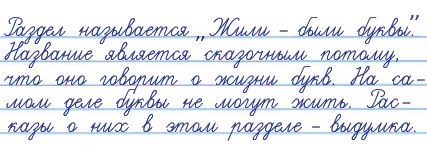 Раздел называется „Жили - были буквы”.
Название является сказочным потому,
что оно говорит о жизни букв. На са-
мом деле буквы не могут жить. Рас-
казы о них в этом разделе - выдумка.